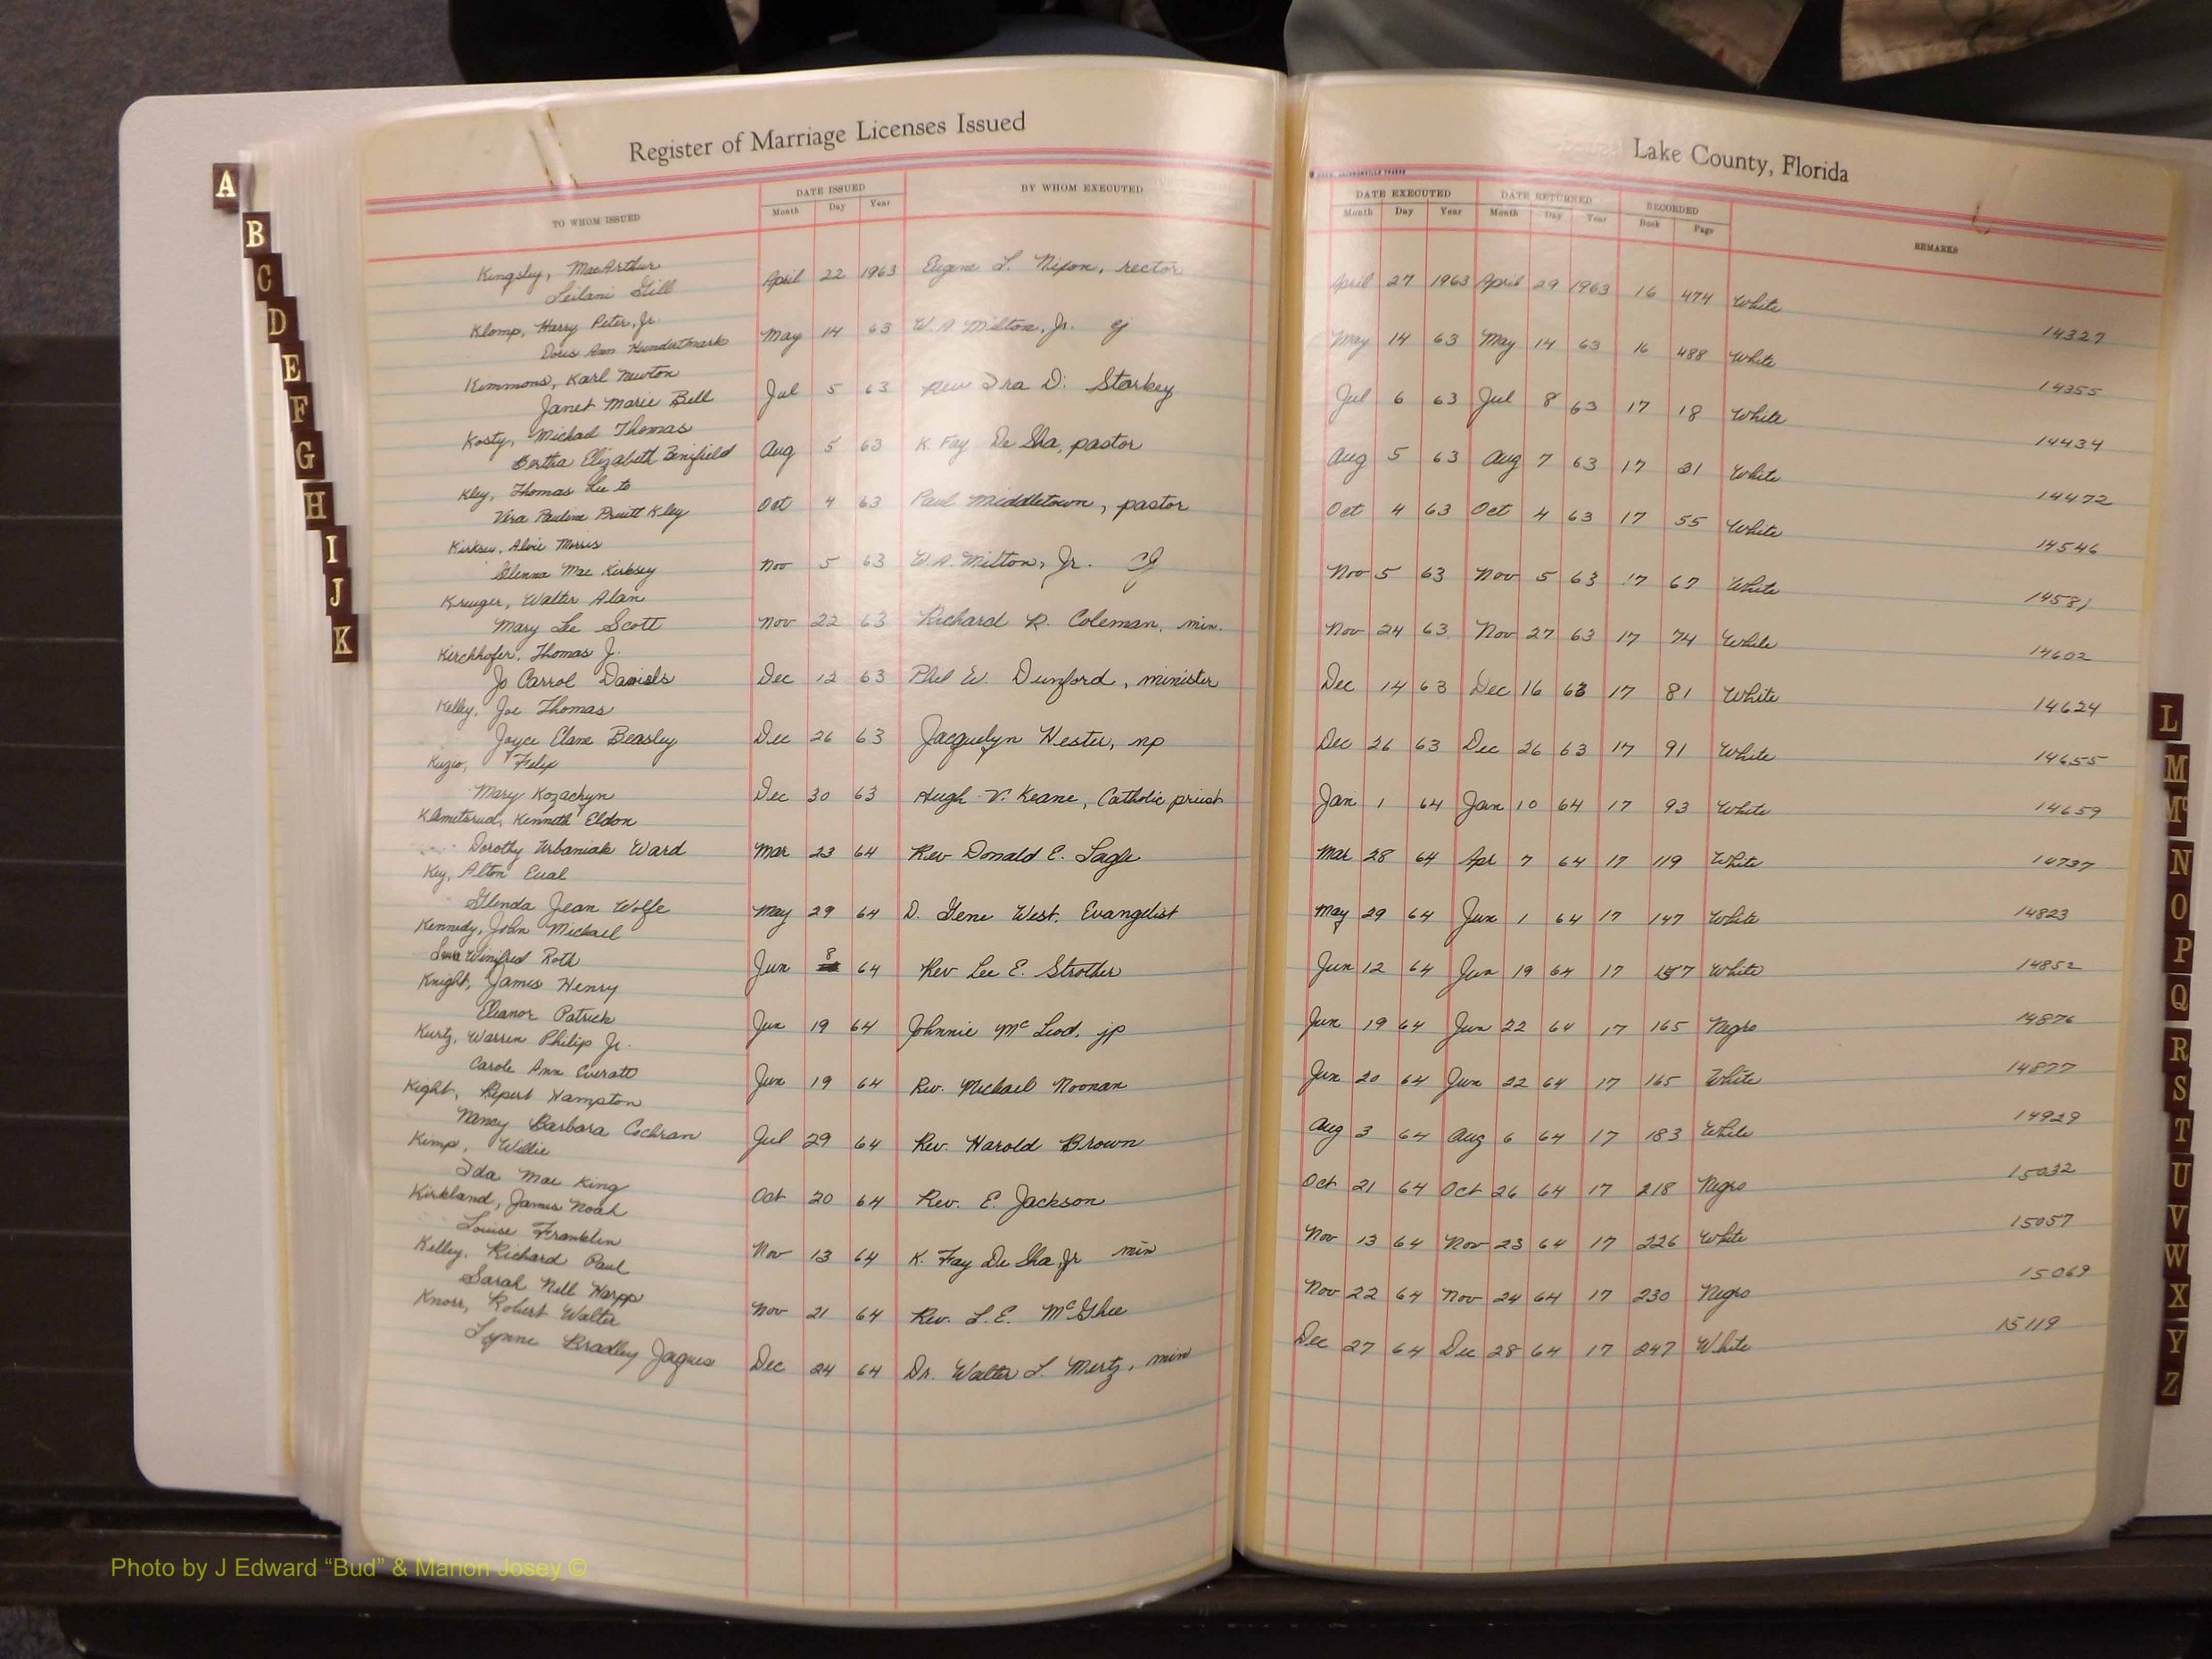 Register of Marriage Licenses Issued
Lake County, Florida
TO WHOM ISSUED
DATE ISSUED
Month Day Year
BY WHOM EXECUTED
DATE EXECUTED
Month Day Year
DATE RETURNED
Month Day Year
RECORDED
Book Page
REMARKS
Kingsley, MacArthur
Leilani Gill
April 22 1963 Eugene L. Nixon, rector April 27 1963 April 29 1963 16 474 White 14327
Klomp, Harry Peter, Jr.
Doris Ann Hundertmark
May 14 63 W. A. Milton, Jr. cj May 14 63 May 14 63 16 488 White 14355
Kimmons, Karl Newton
Janet Marie Bell
Jul 5 63 Rev Ira D. Starkey Jul 6 63 Jul 8 63 17 18 White 14434
Kosty, Michael Thomas
Bertha Elizabeth
Aug 5 63 K. Fay De Sha, pastor Aug 5 63 Aug 7 63 17 31 White 14472
Kley, Thomas Lee to
Vera Pauline Pruitt Kley
Oct 4 63 Paul Middletown, pastor Oct 4 63 Oct 4 63 17 55 White 14546
Kirksey, Alvie Morris
Glenna Mae Kirksey
Nov 5 63 W. A. Milton, Jr. CJ Nov 5 63 Nov 5 63 17 67 White 14581
Kruger, Walter Alan
Mary Lee Scott
Nov 22 63 Richard R. Coleman, min. Nov 24 63 Nov 27 63 17 74 White 14602
Kirchhofer, Thomas J.
Jo Carrol Daniels
Dec 12 63 Phil W. Dunford, minister Dec 14 63 Dec 16 63 17 81 White 14624
Kelley, Joe Thomas
Joyce Elane Beasley
Dec 26 63 Jacquelyn Hester, np Dec 26 63 Dec 26 63 17 91 White 14655
Kuzio, Felix
Mary Kozachyn
Dec 30 63 Hugh V. Keane, Catholic priest Jan 1 64 Jan 10 64 17 93 White 14659
Klametsrud, Kenneth Eldon
Dorothy Urbaniak Ward
Mar 23 64 Rev Donald E. Lagle Mar 28 64 Apr 7 64 17 119 White 14737
Key, Alton Eual
Glenda Jean Wolfe
May 29 64 D. Gene West, Evangelist May 29 64 Jun 1 64 17 147 White 14823
Kennedy, John Michael
Winifred Roth
Jun 8 64 Rev Lee E. Strother Jun 12 64 Jun 19 64 17 157 White 14852
Knight, James Henry
Eleanor Patrick
Jun 19 64 Johnnie McLeod, jp Jun 19 64 Jun 22 64 17 165 Negro 14876
Kurtz, Warren Philip Jr.
Carole Ann Everatt
Jun 19 64 Rev. Michael Noonan Jun 20 64 Jun 22 64 17 165 White 14877
Kight, Rupert Hampton
Nancy Barbara Cochran
Jul 29 64 Rev. Harold Brown Aug 3 64 Aug 6 64 17 183 White 14929
Kimp, Willie
Ida Mae King
Oct 20 64 Rev. E. Jackson Oct 21 64 Oct 26 64 17 218 Negro 15032
Kirkland, James Noah
Louise Franklin
Nov 13 64 K. Fay De Sha, Jr min Nov 13 64 Nov 23 64 17 226 White 15057
Kelley, Richard Paul
Sarah Nell Harpp
Nov 21 64 Rev. L. E. McGhee Nov 22 64 Nov 24 64 17 230 Negro 15069
Knorr, Robert Walter
Lynne Bradley Jaques
Dec 24 64 Dr. Walter L. Mertz, min Dec 27 64 Dec 28 64 17 247 White 15119
A
B
C
D
E
F
G
H
I
J
K
L
M
Mc
N
O
P
Q
R
S
T
U
V
W
X
Y
Z
Photo by J Edward “Bud” & Marion Josey ©